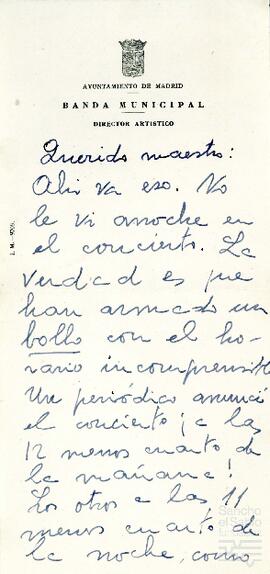 AYUNTAMIENTO DE MADRID
BANDA MUNICIPAL
DIRECTOR ARTISTICO
Querido maestro:
Ahi va eso. No
le vi anoche en
el concierto. La
verdad es que
han armado un
bollo con el ho-
rario incomprensible
Un periódico anunció
el concierto ¡a las
12 menos cuarto de
la mañana!
Los otros a las 11
menos cuarto de
la noche, como
Sancho
el Sabio